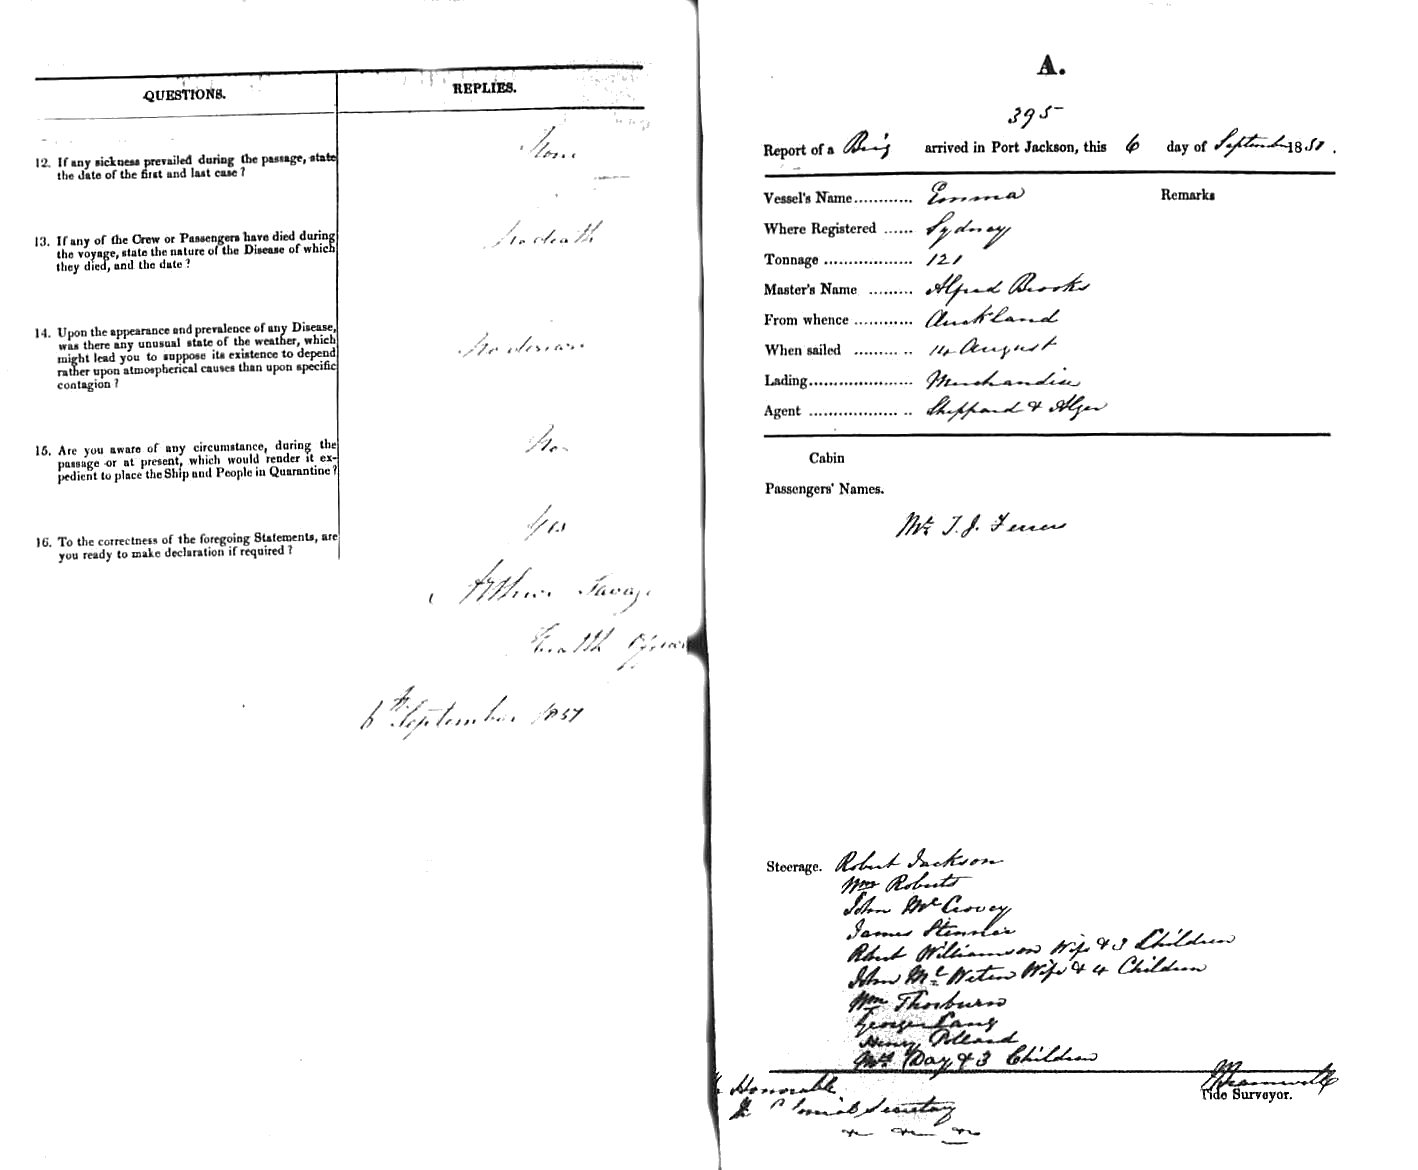 QUESTIONS.
REPLIES.
12. If any sickness prevailed during the passage, state
the date of the first and last case ?
None
13. If any of the Crew or Passengers have died during
the voyage, state the nature of the Disease of which
they died, and the date ?
No death
14. Upon the appearance and prevalence of any Disease,
was there any unusual state of the weather, which
might lead you to suppose its existence to depend
rather upon atmospherical causes than upon specific
contagion ?
No disease
15. Are you aware of any circumstance, during the
passage or at present, which would render it ex-
pedient to place the Ship and People in Quarantine ?
No
16. To the correctness of the foregoing Statements, are
you ready to make declaration if required ?
Yes
Arthur Savage
Health Officer
6th September 1851
A.
395
Report of a Brig arrived in Port Jackson, this 6 day of September 1851.
Vessel's Name ............ Emma
Remarks
Where Registered ...... Sydney
Tonnage .................. 121
Master's Name ......... Alfred Brooks
From whence ............ Auckland
When sailed ......... .. 14 August
Lading ..................... Merchandise
Agent .................. .. Sheppard & Alger
Cabin
Passengers' Names.
Mr. T. J. Ferrers
Steerage. Robert Jackson
Wm Roberts
John Mc
James
Robert Williamson Wife & 3 Children
John Mc Wife & 4 Children
Wm Thorburn
George Lang
Henry Pollard
Mrs Day & 3 Children
Honorable
Colonial Secretary
Tide Surveyor.